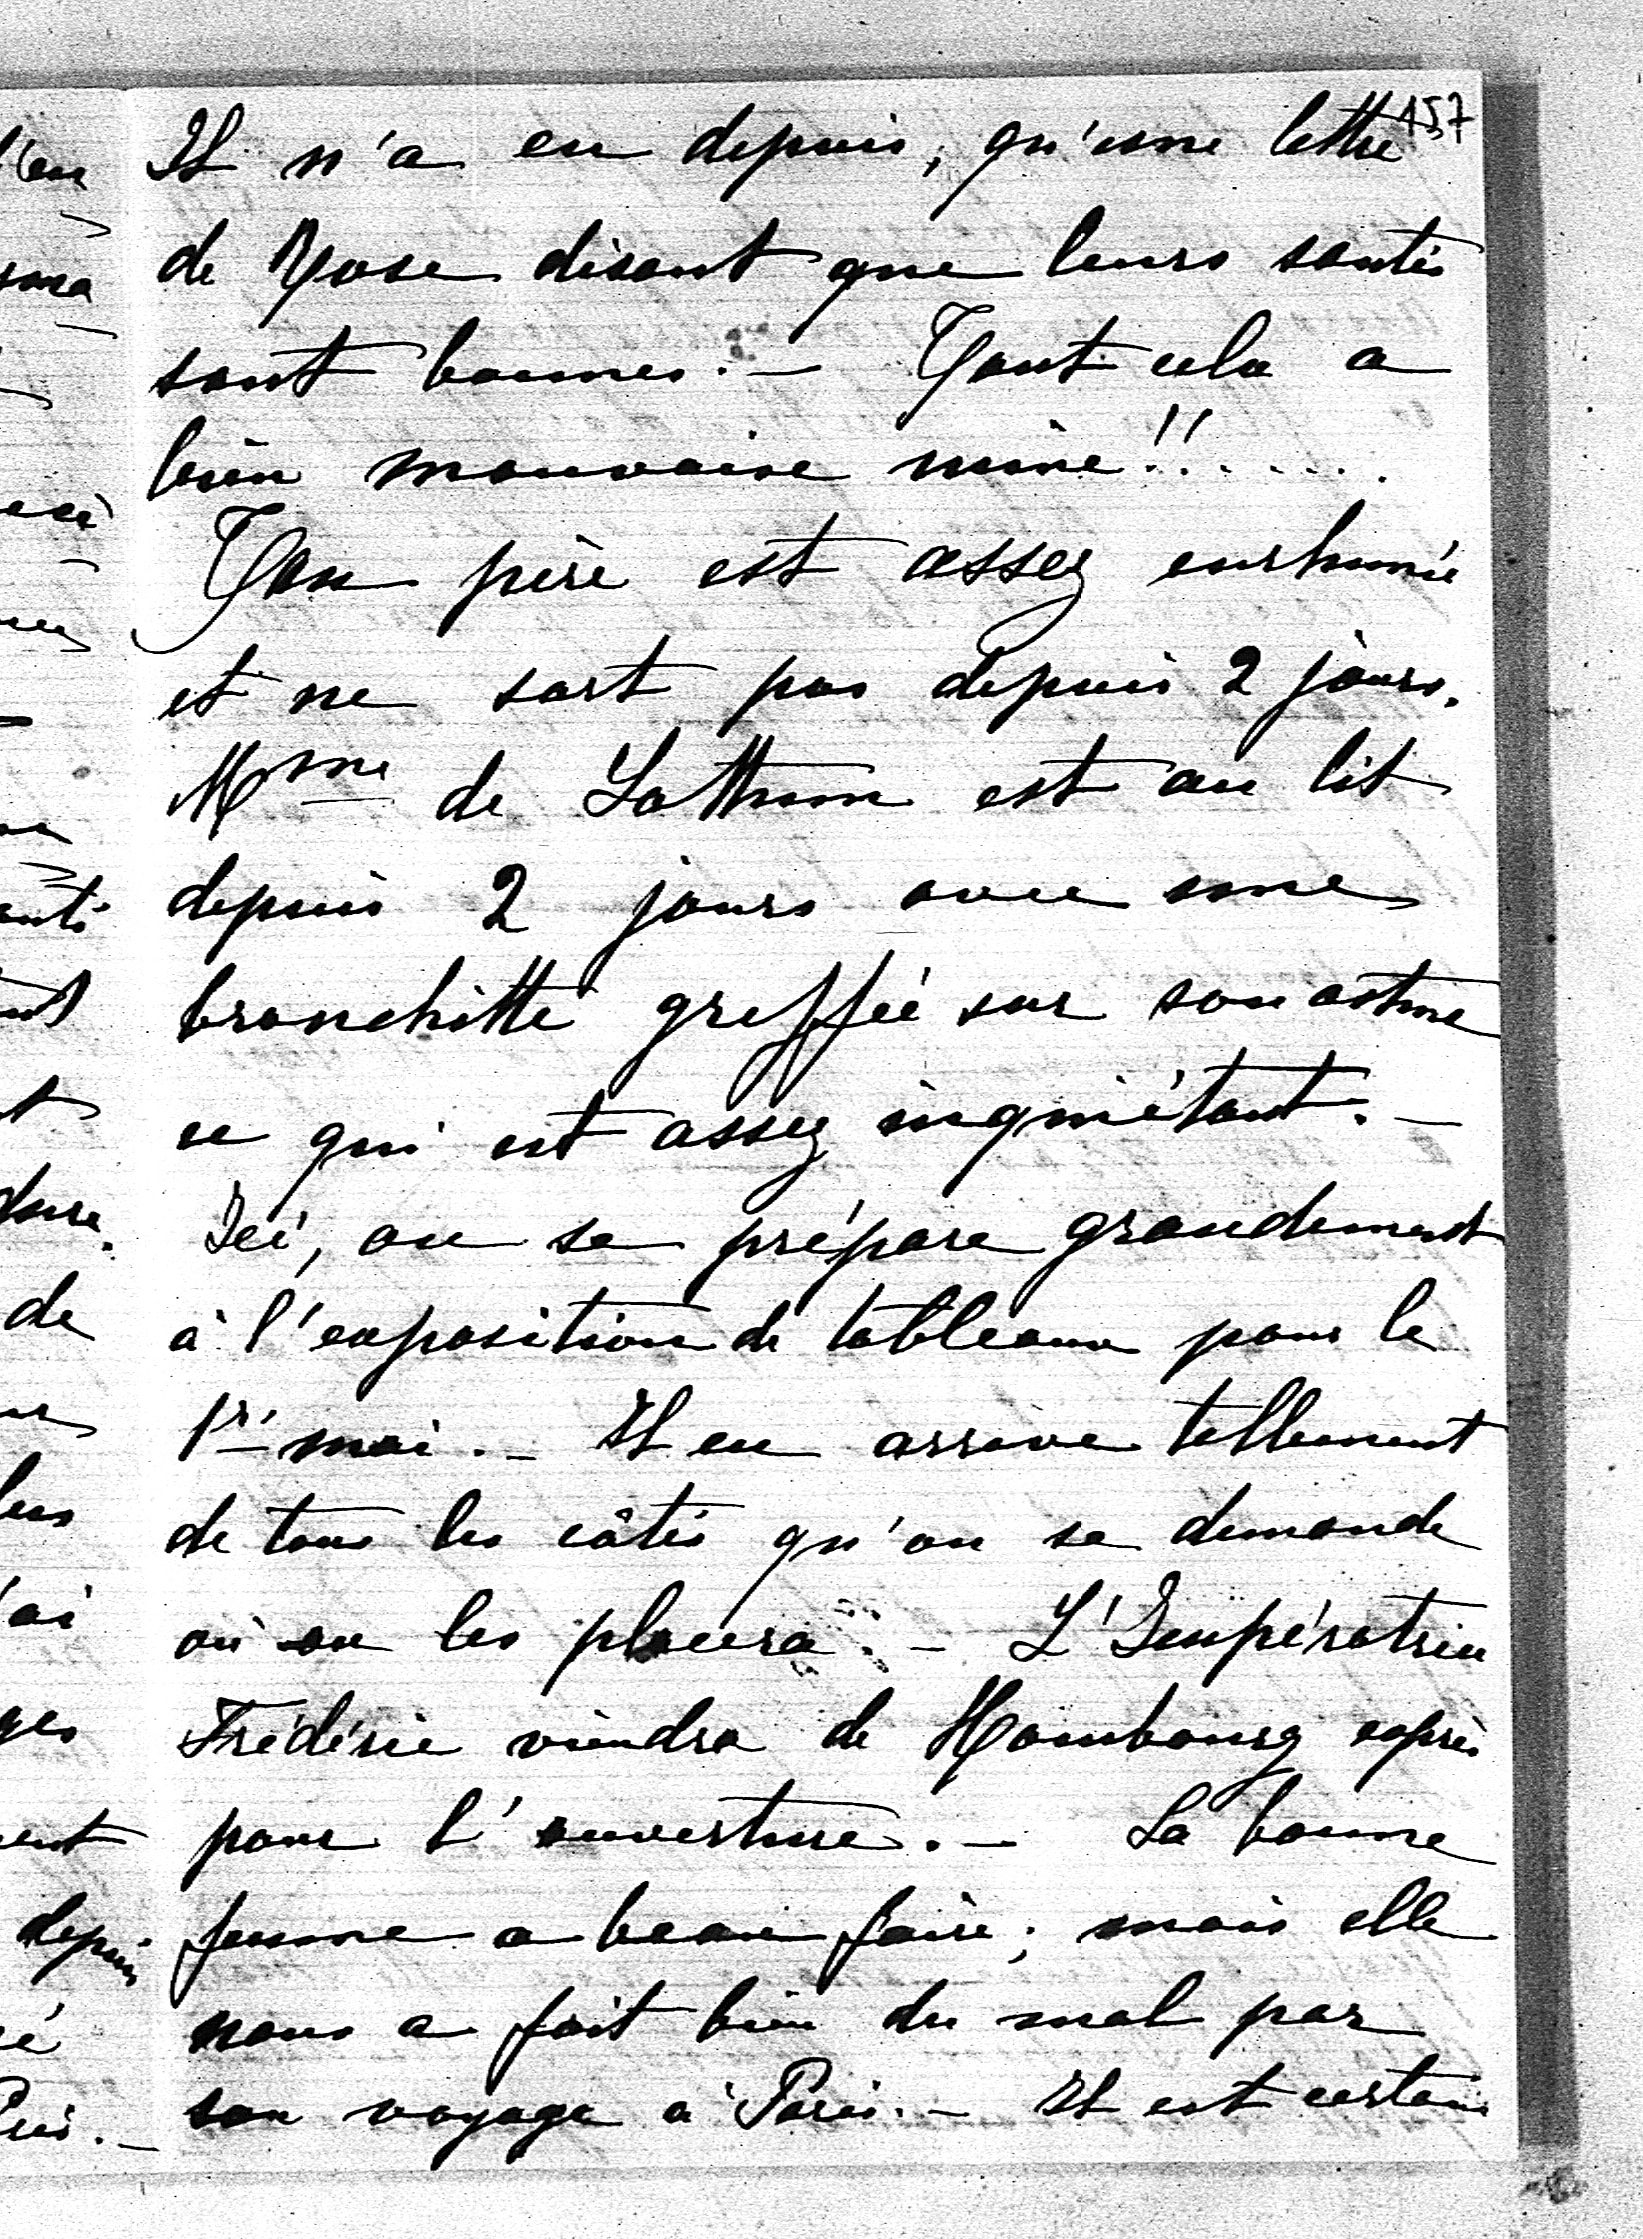 157
Il n'a eu depuis, qu'une lettre
de Rose disant que leurs santés
sont bonnes. — Tout cela a
bien mauvaise mine!!.....
Ton père est assez enrhumé
et ne sort pas depuis 2 jours.
Mme de Lottum est au lit
depuis 2 jours avec une
bronchitte greffée sur son astme
ce qui est assez inquiétant. —
Ici, on se prépare grandement
à l'exposition de tableaux pour le
1er mai. — Il en arrive tellement
de tous les côtés qu'on se demande
où on les placera. — L'Impératrice
Frédéric viendra de Hombourg exprès
pour l'ouverture. — La bonne
femme a beau faire; mais elle
nous a fait bien du mal par
son voyage à Paris. — Il est certain
de
depuis